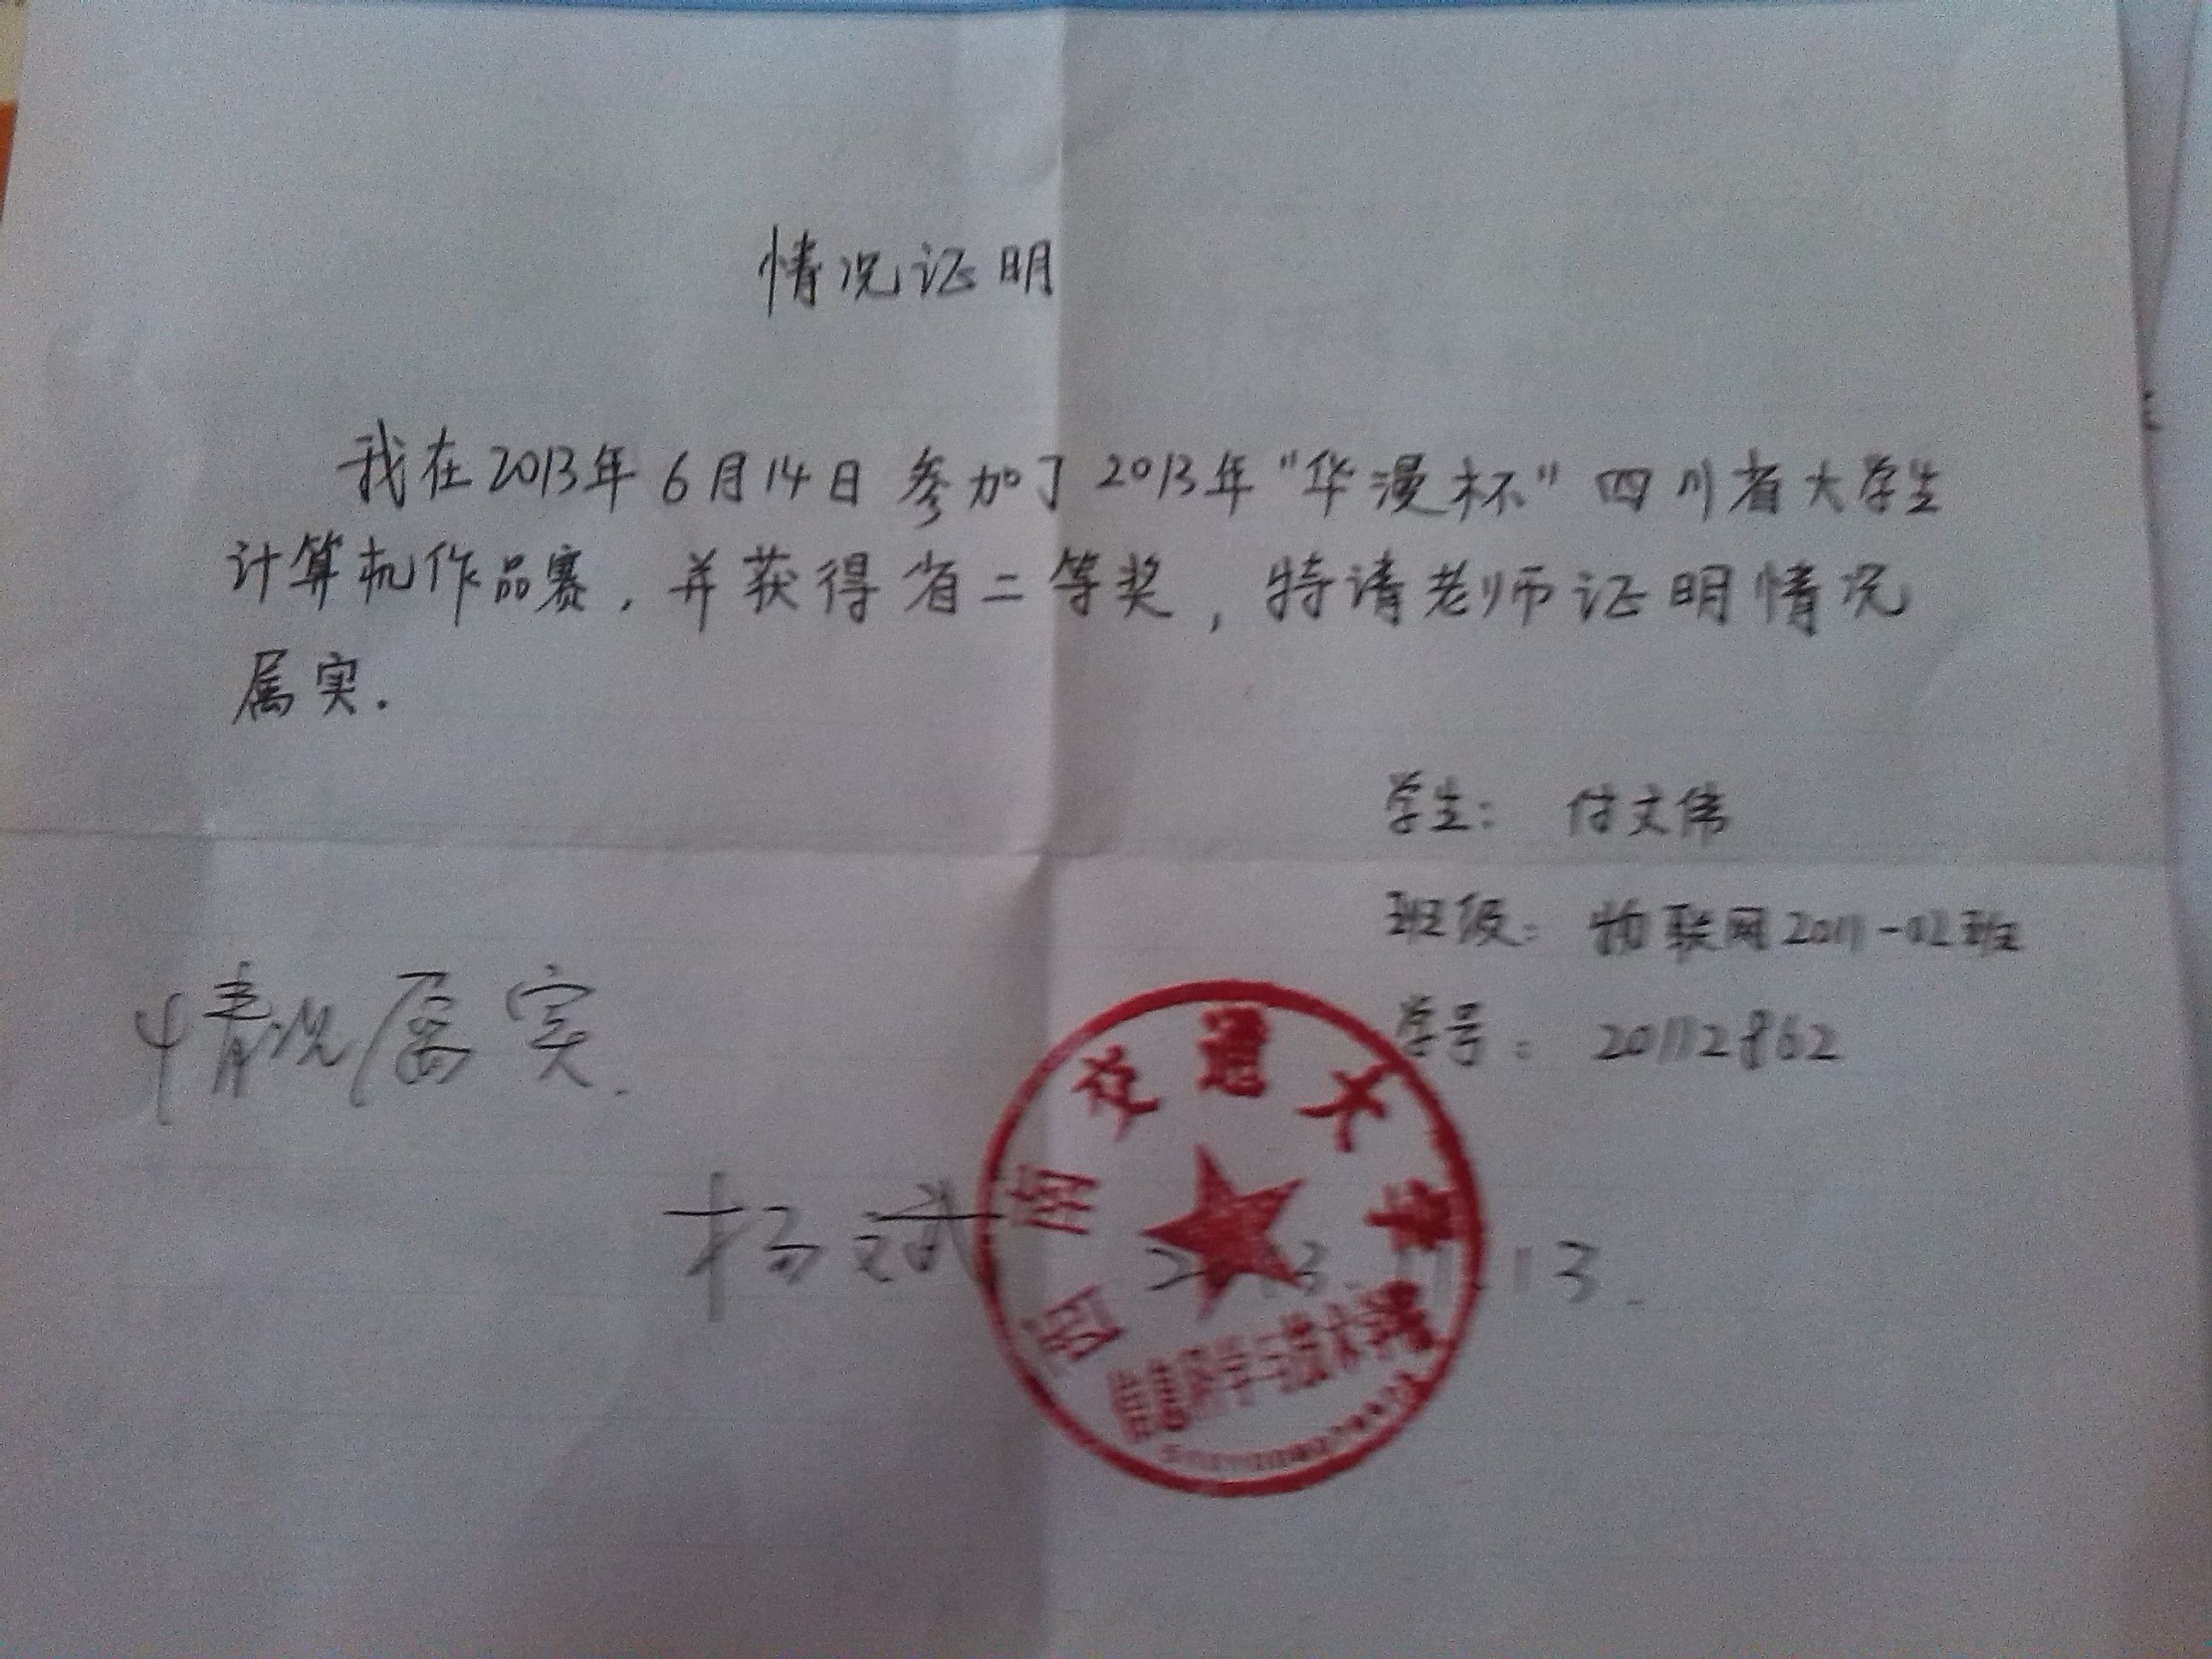 情况证明
我在2013年6月14日参加了2013年“华漫杯”四川省大学生
计算机作品赛，并获得省二等奖，特请老师证明情况
属实.
学生： 付文伟
班级： 物联网2011-02班
学号： 20112862
情况属实.
杨斌 2013.11.13.
西南交通大学
信息科学与技术学院